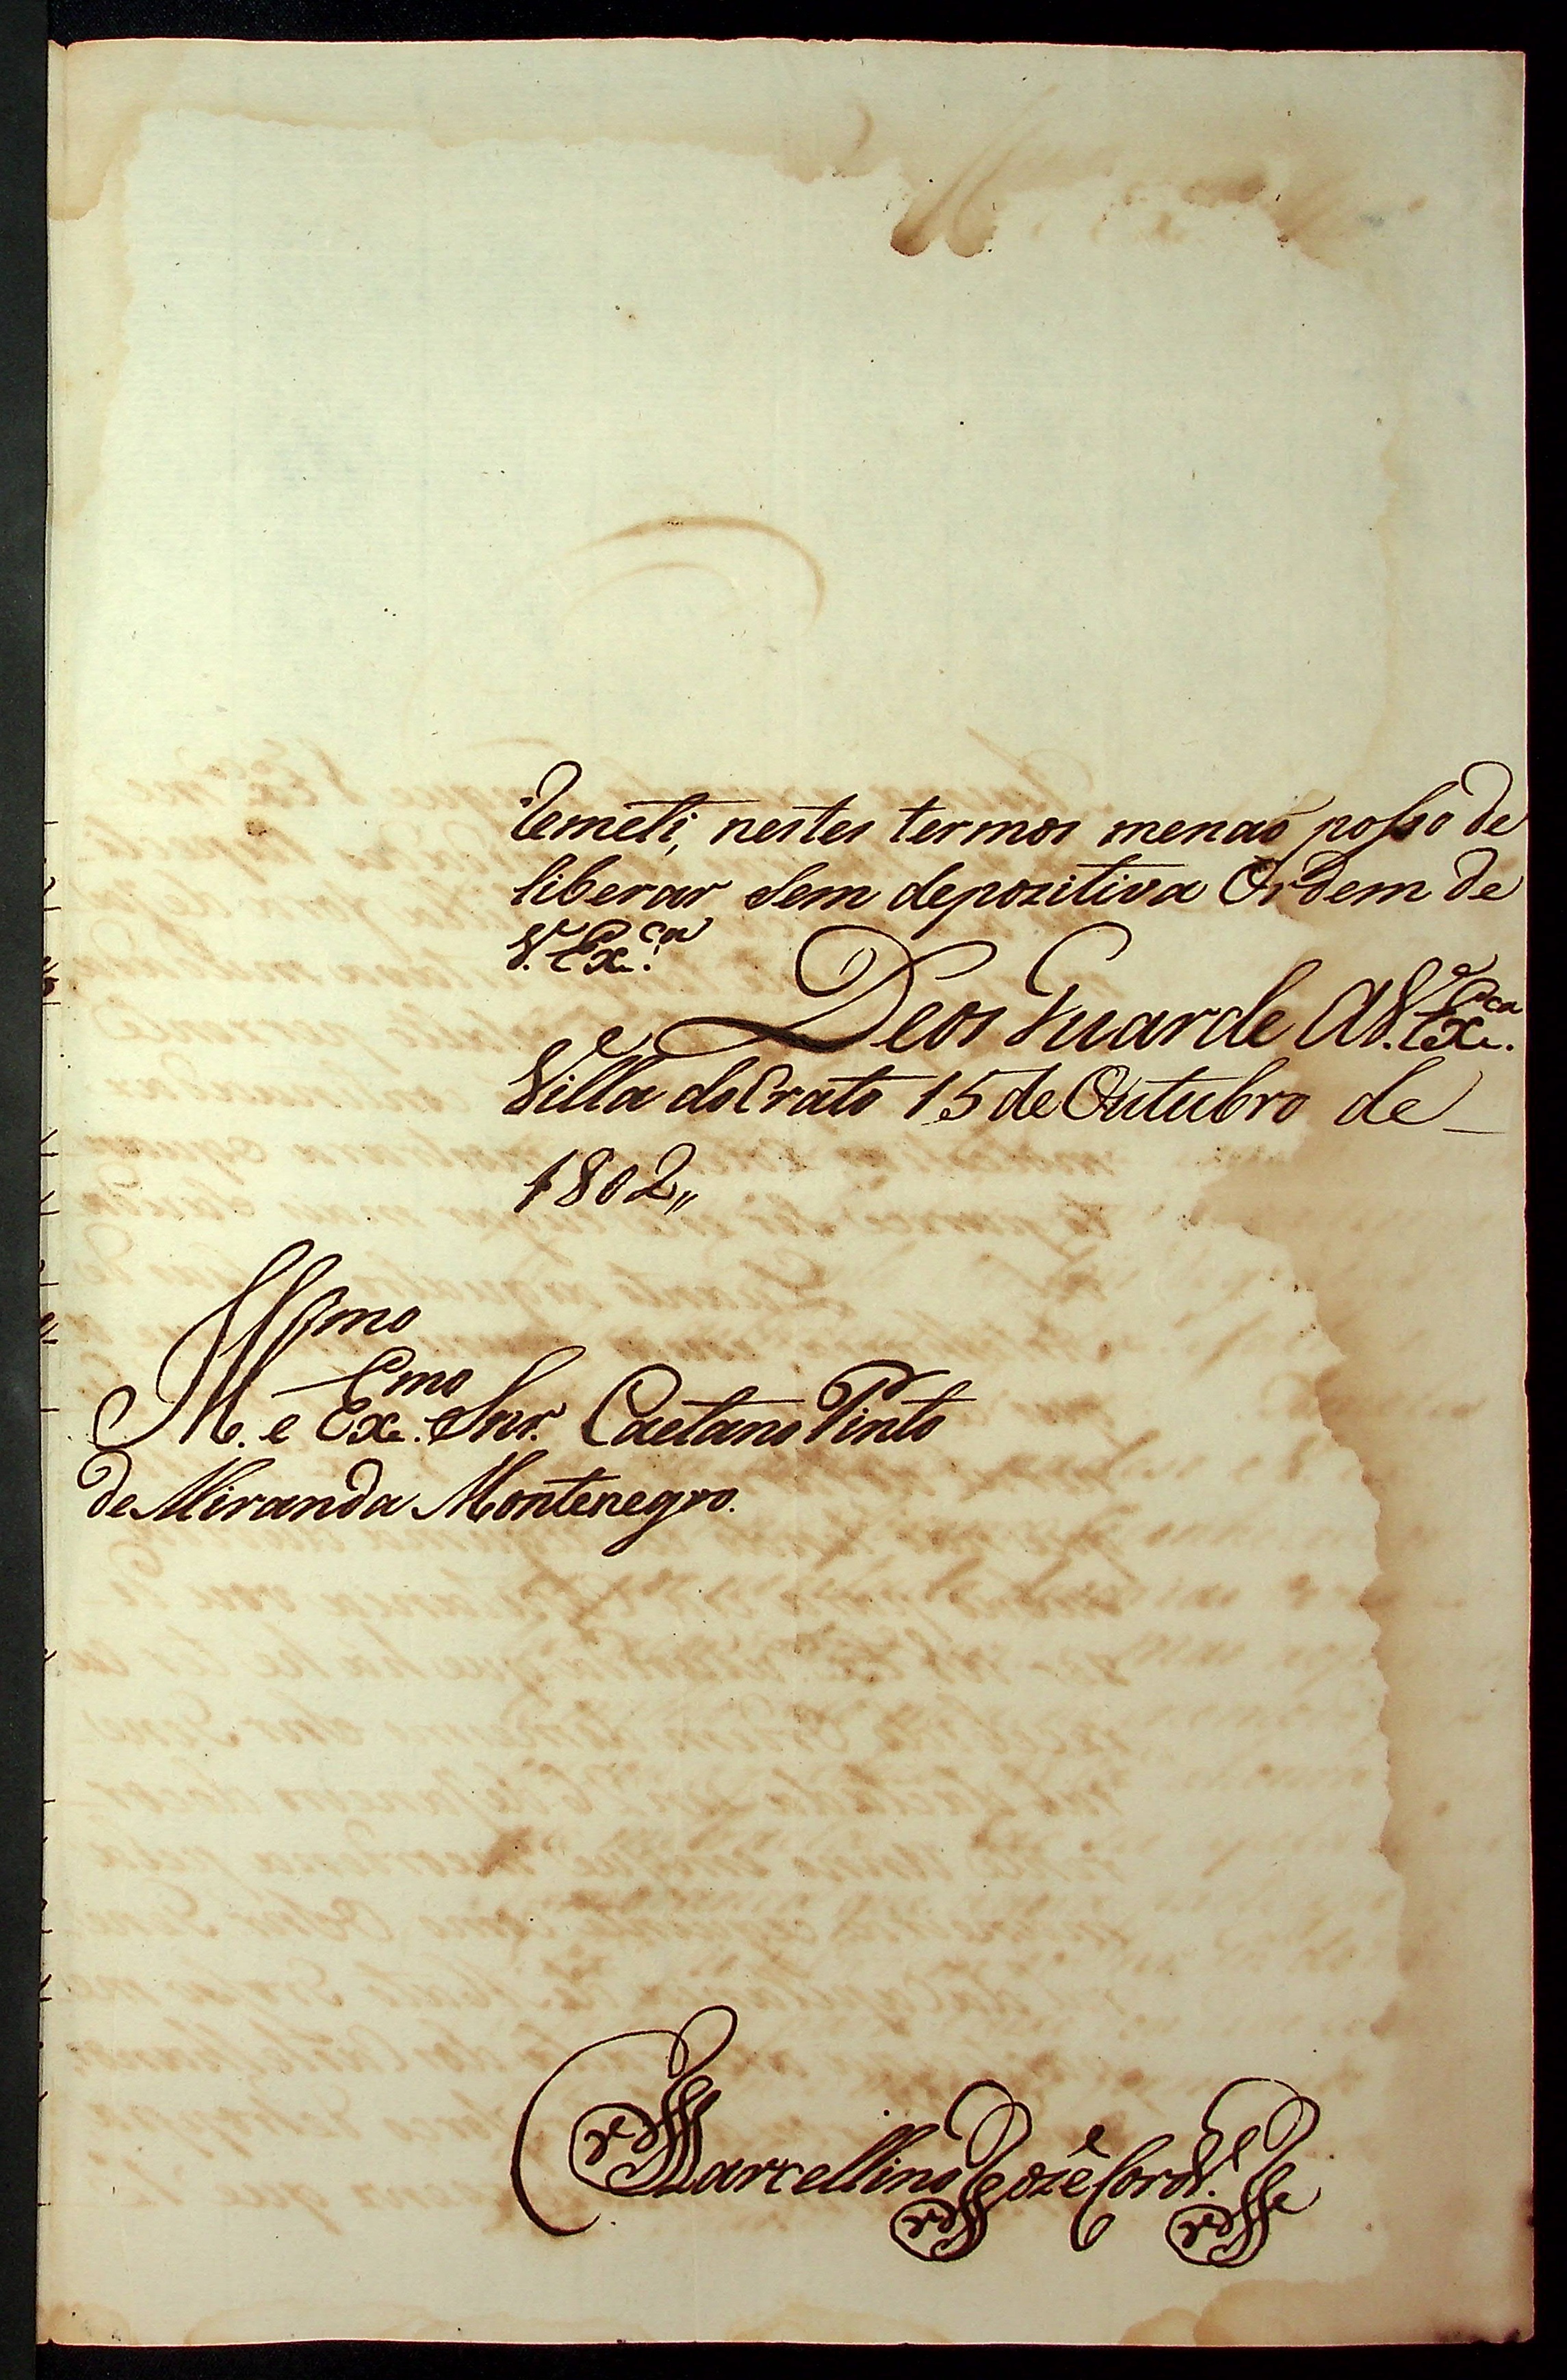 remeti, nestes termos menaõ poſso de
liberar Sem depozitiva Ordem de
V. Ex.ca
Deos Guarde AV. Ex.ca
Villa do Crato 15 de Outubro de
1802,,
Ill.mo e Ex.mo Snr. Caetano Pinto
de Miranda Montenegro.
Marcellino Jozé Cord.o